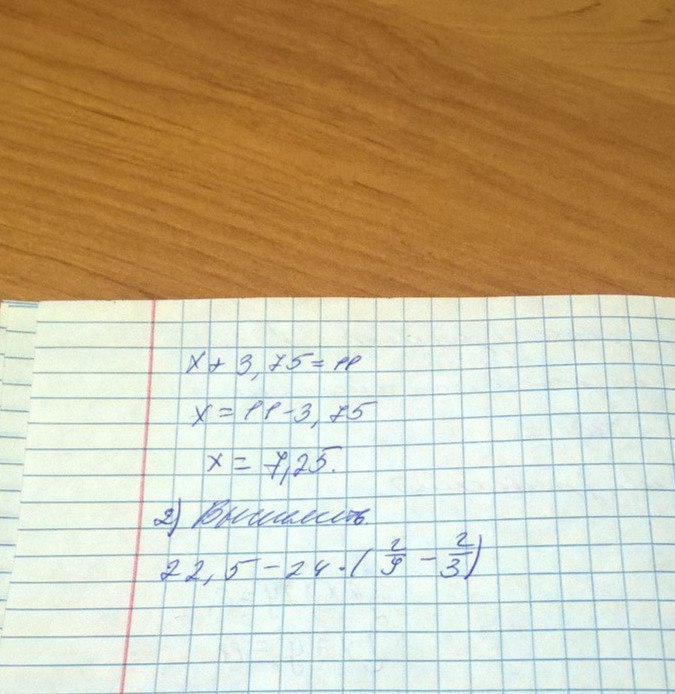 x + 3,75 = 11
x = 11 - 3,75
x = 7,25.
2) Вычислить
22,5 - 24 · ( 2/9 - 2/3 )